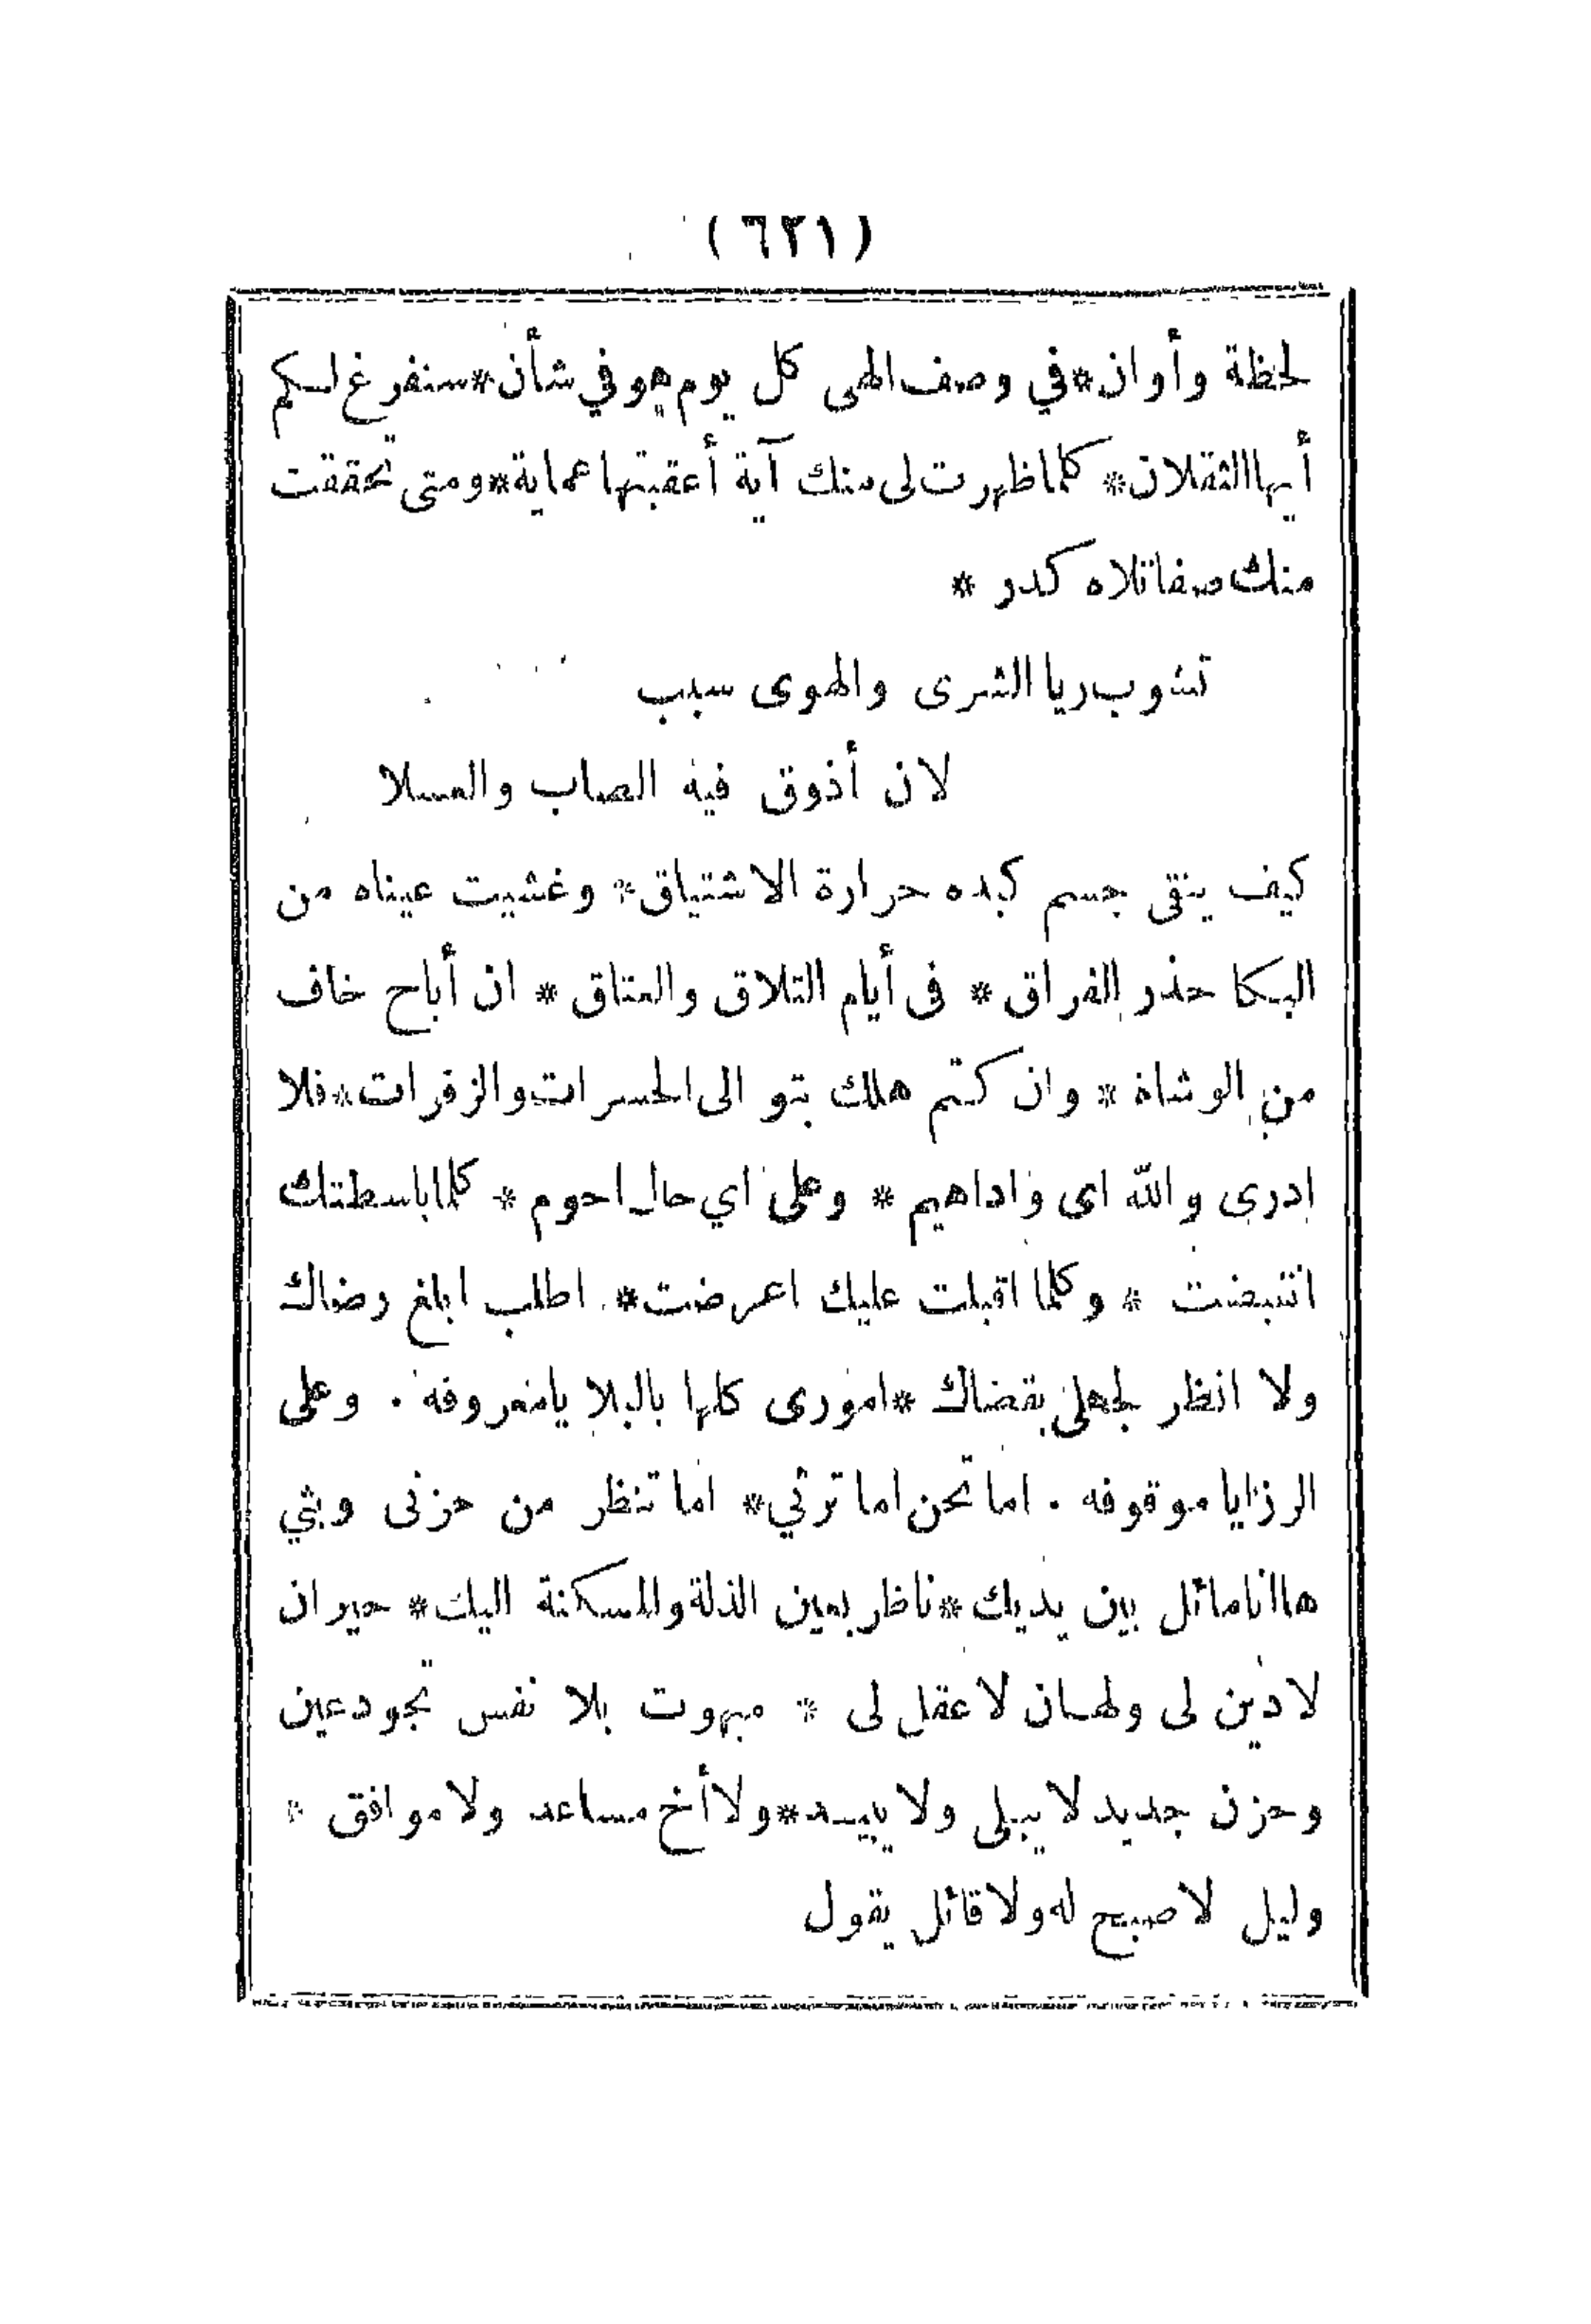 (٦٢١)
لحظة وأوان*في وصف الهى كل يوم هو في شأن*سنفرغ لكم
أيها الثقلان* كلما ظهرت لى منك آية أعقبتها عماية*ومتى تحققت
منك صفا تلاه كدر *
تشوب ريا الشرى والهوى سبب
لان أذوق فيه الصاب والعسلا
كيف يبقى جسم كبده حرارة الاشتياق* وغشيت عيناه من
البكا حذر الفراق* فى أيام التلاق والعتاق* ان أباح خاف
من الوشاة* وان كتم هلك بتو الى الحسرات والزفرات*فلا
ادرى والله اى واد اهيم* وعلى اي حال احوم* كلما باسطتك
انتبضت * وكلما اقبلت عليك اعرضت* اطلب ابلغ رضاك
ولا انظر لجهلى بقضاك*امورى كلها بالبلا يا معروفه . وعلى
الرزايا موقوفه . اما تحن اما ترثي* اما تنظر من حزنى وبثي
ها انا ماثل بين يديك*ناظر بعين الذلة والمسكنة اليك* حيران
لا دين لى ولهان لا عقل لى * مبهوت بلا نفس تجود عين
وحزن جديد لا يبلى ولا يبيد*ولا أخ مساعد ولا موافق *
وليل لا صبح له ولا قائل يقول